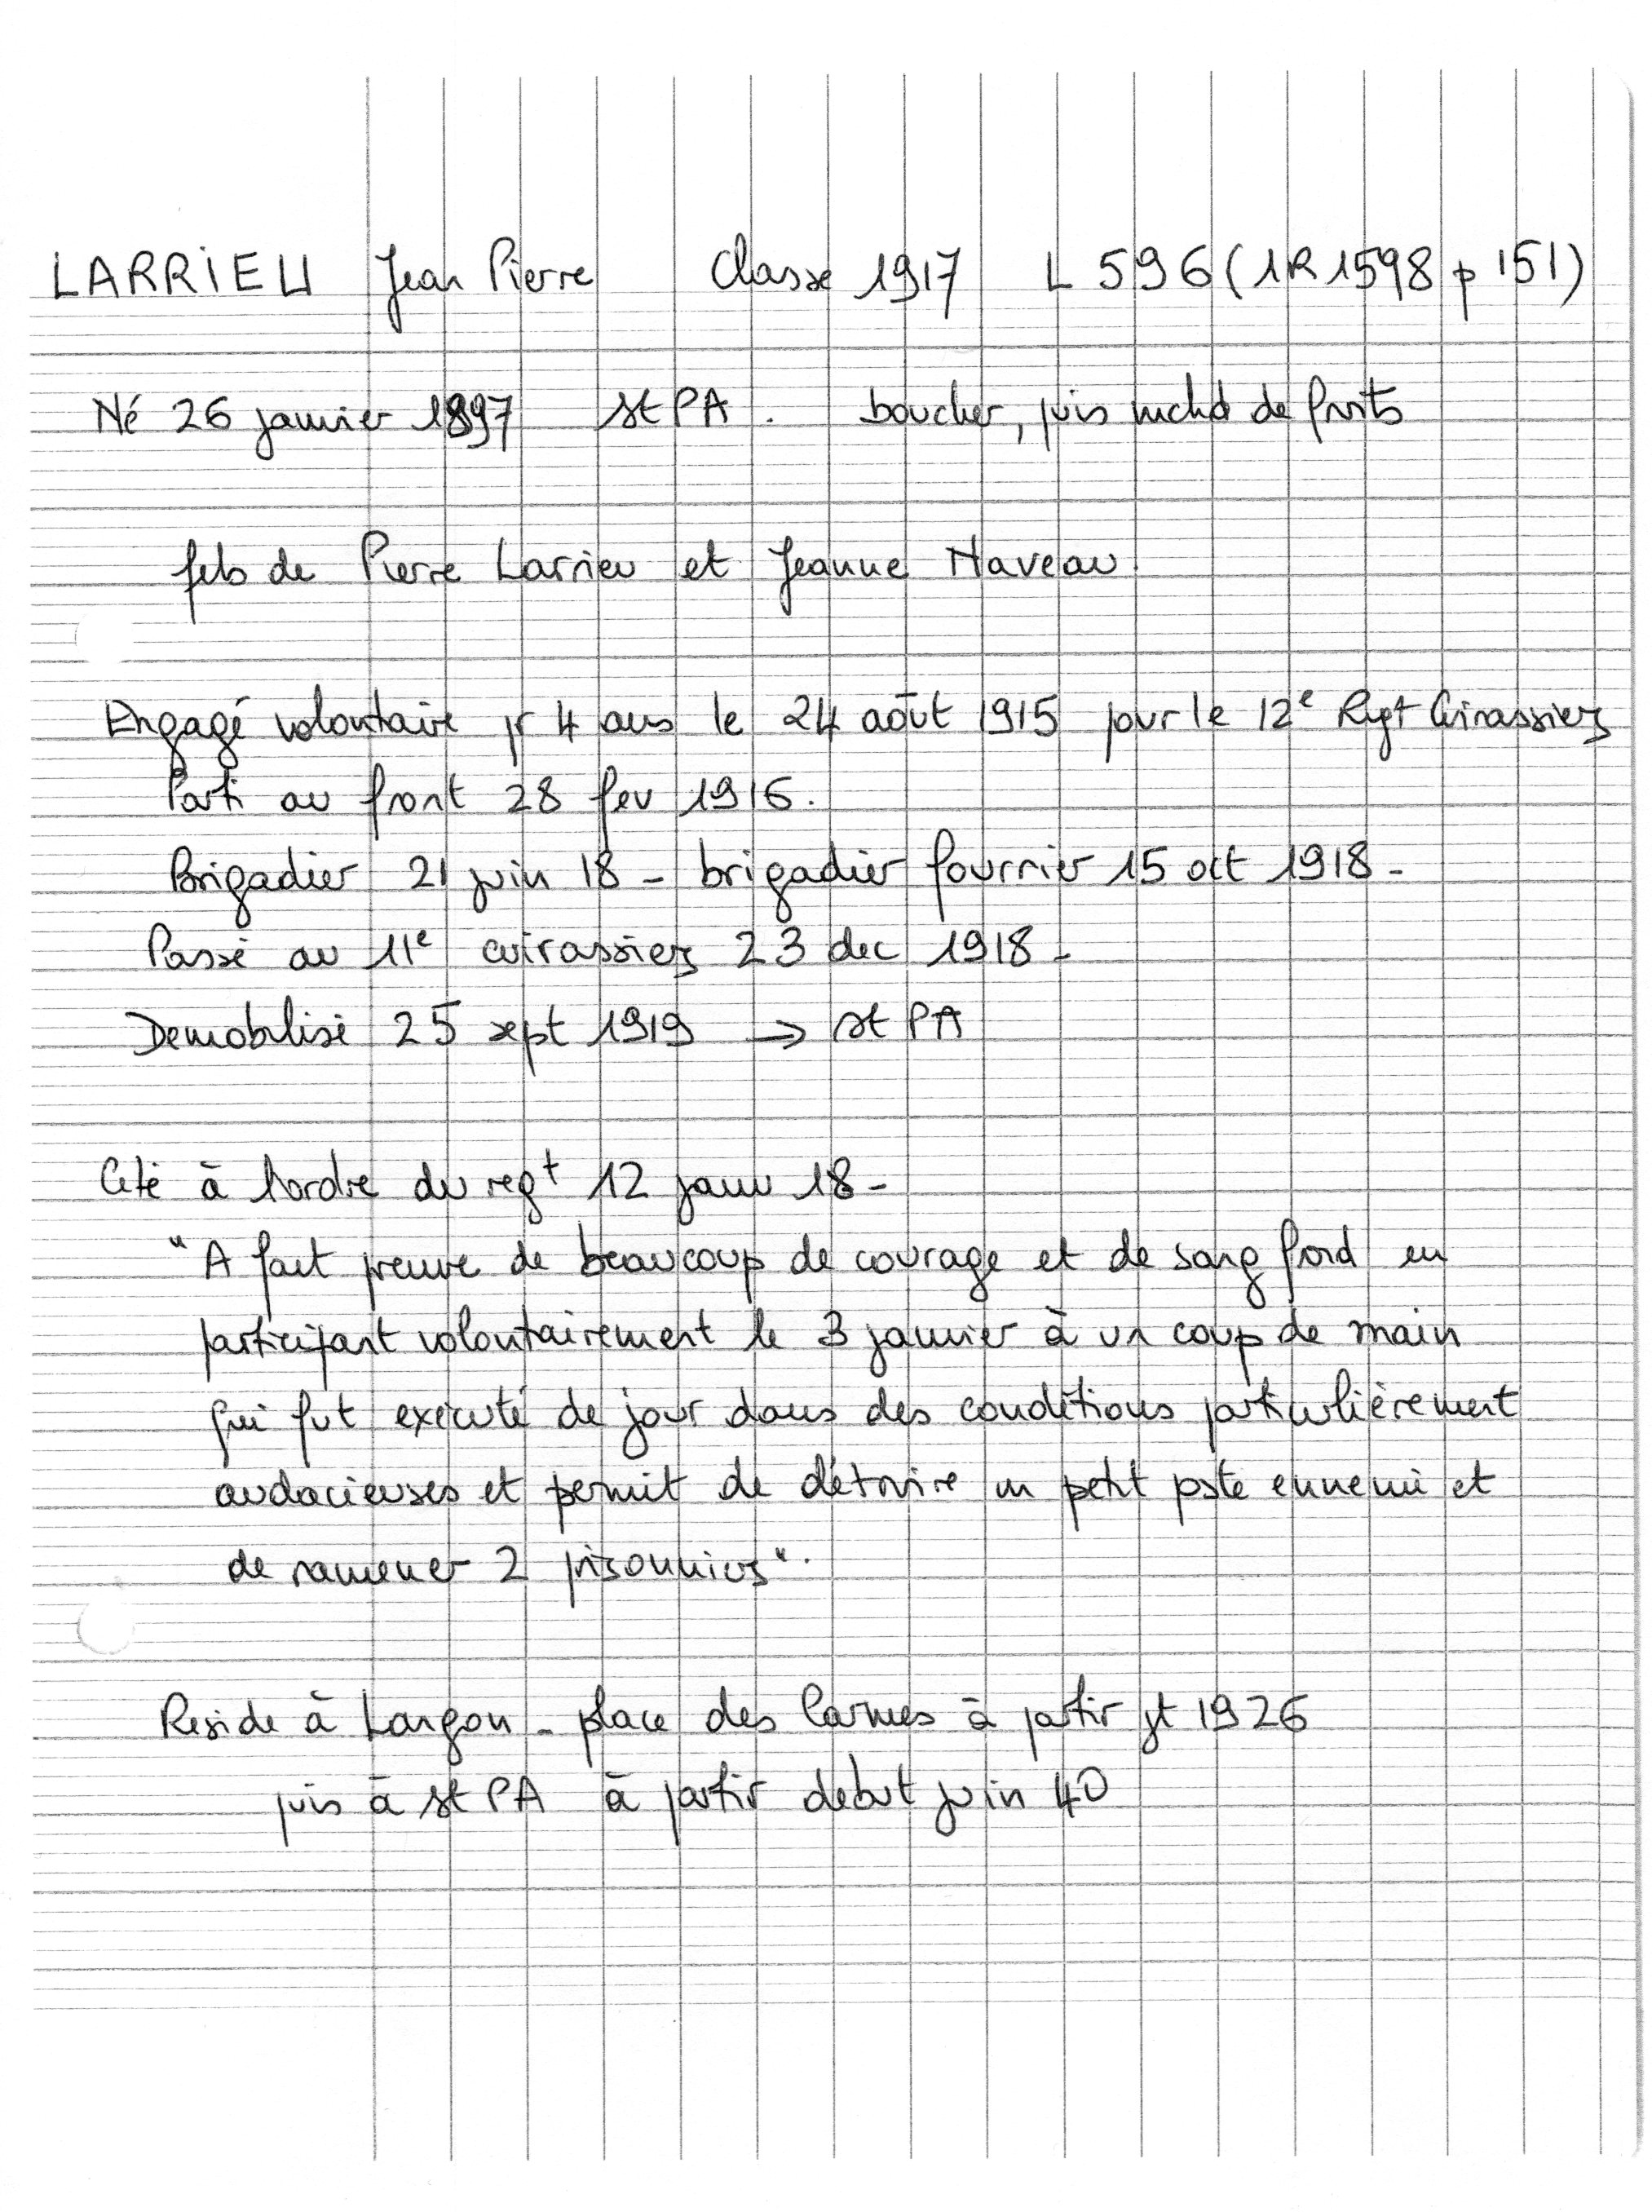 LARRIEU Jean Pierre Classe 1917 L 596 (1R 1598 p 151)
Né 26 janvier 1897 St PA. boucher, puis mchd de fruits
fils de Pierre Larrieu et Jeanne Naveau.
Engagé volontaire pr 4 ans le 24 août 1915 pour le 12e Rgt Cuirassiers
Parti au front 28 fev 1916.
Brigadier 21 juin 18 - brigadier fourrier 15 oct 1918 -
Passé au 11e cuirassiers 23 dec 1918 -
Demobilisé 25 sept 1919 → St PA
Cité à l'ordre du regt 12 janv 18 -
"A fait preuve de beaucoup de courage et de sang froid en
participant volontairement le 3 janvier à un coup de main
qui fut executé de jour dans des conditions particulièrement
audacieuses et permit de détruire un petit poste ennemi et
de ramener 2 prisonniers".
Reside à Langon - place des Carmes à partir jt 1926
puis à St PA à partir debut juin 40